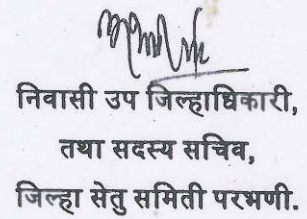 निवासी उप जिल्हाधिकारी,
तथा सदस्य सचिव,
जिल्हा सेतु समिती परभणी.